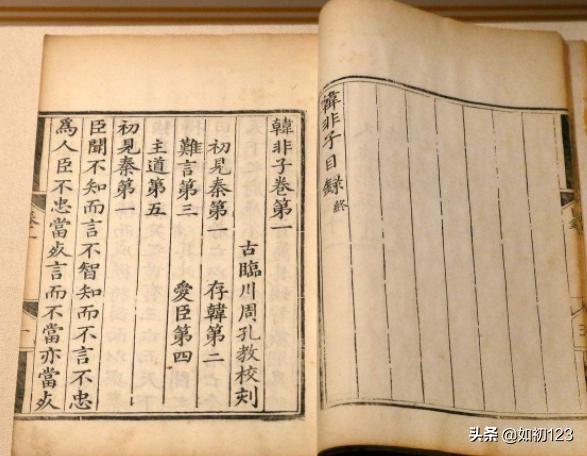 韓非子目録終
韓非子卷第一
古臨川周孔教校刻
初見秦第一 存韓第二
難言第三 愛臣第四
主道第五
初見秦第一
臣聞不知而言不智知而不言不忠
爲人臣不忠當死言而不當亦當死
头条 @如初123